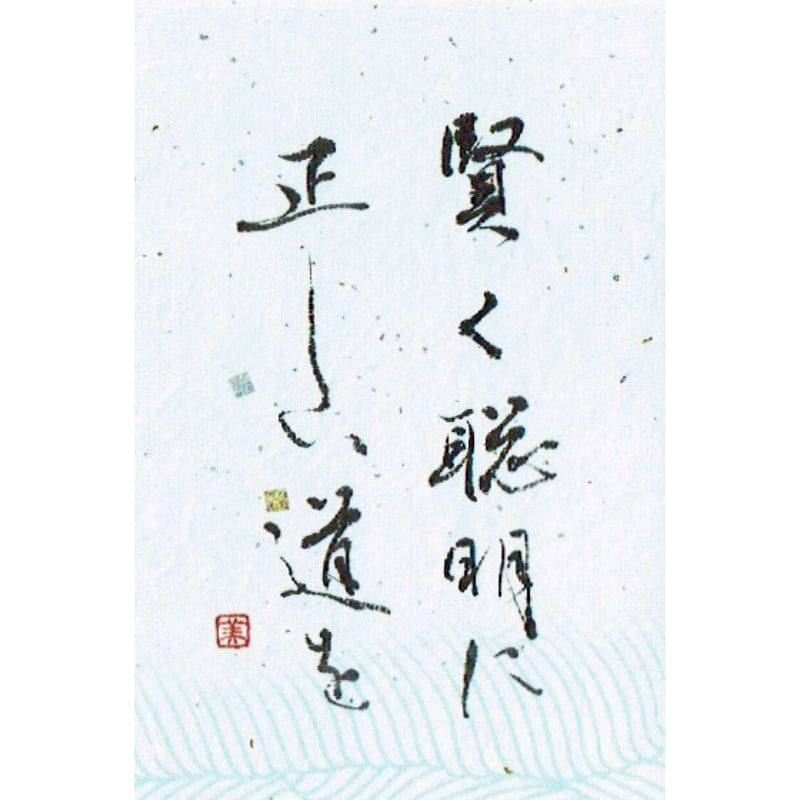 賢く聡明に
正しい道を
美